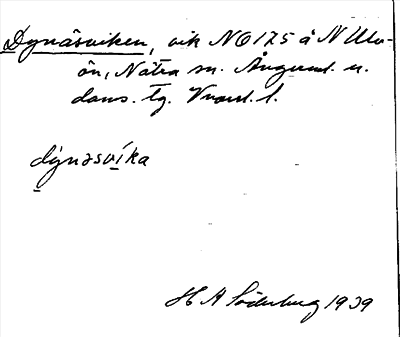 Dynäsviken, vik NO 175 å N Ulv-
ön, Nätra sn. Ångerml. n.
doms. tg. Vnorl. l.
dy̱nəsvi̱ka
H A Söderberg 1939